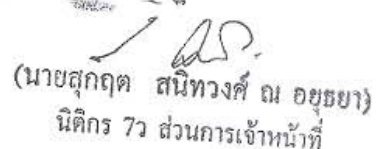 (นายสุกฤต สนิทวงศ์ ณ อยุธยา)
นิติกร 7ว ส่วนการเจ้าหน้าที่